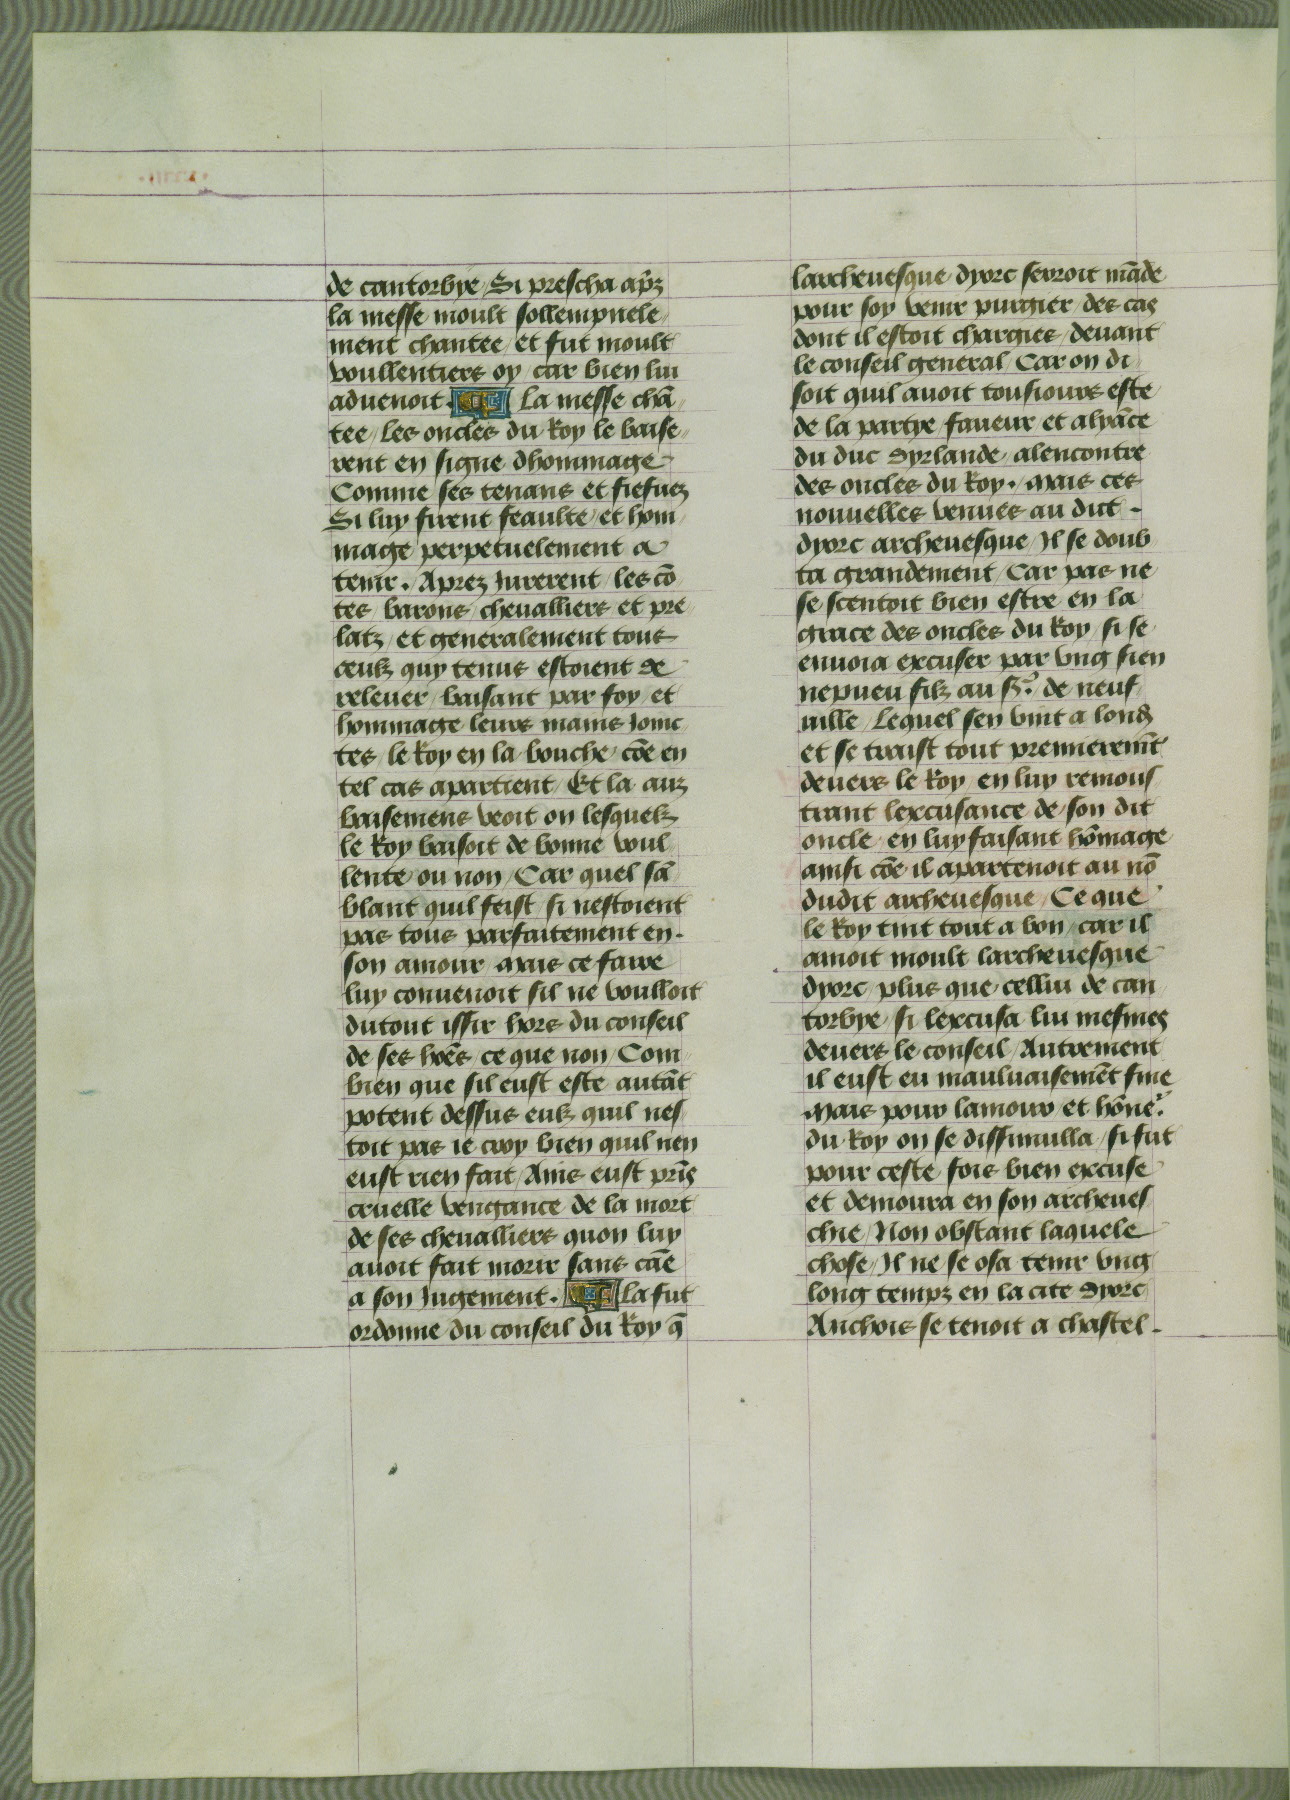 de cantorbye / Si prescha ap̃z
la messe moult sollempnele /
ment chantee / et fut moult
voullentiers oy / car bien lui
aduenoit . La messe chã /
tee / les oncles du Roy le baise /
rent en signe dhommage
Comme ses tenans et fiefuez
Si luy firent feaulte / et hom /
mage perpetuelement a
tenir . Aprez Jurerent / les cõ
tes barons / cheualliers et pre /
latz / et generalement tous
ceulz quy tenus estoient de
releuer / baisant par foy / et
hommage leurs mains Joinc /
tes / le Roy en la bouche / cõe en
tel cas apartient / Et la aux
baisemens veoit on lesquelz
le Roy baisoit de bonne voul /
lente / ou non / Car quel sã /
blant quil feist si nestoient
pas tous parfaitement en .
son amour / mais ce faire
luy conuenoit sil ne voulloit
dutout issir hors du conseil
de ses hoẽs / ce que non / Com /
bien que sil eust este autãt
potent dessus eulz quil nes /
toit pas ie croy bien quil nen
eust rien fait / Ains eust prĩs
cruelle vengance de la mort
de ses cheualliers quon luy
auoit fait morir sans cãe
a son Jugement . La fut
ordonne du conseil du Roy q̃
larcheuesque dyorc seroit mãde
pour soy venir purgier / des cas
dont il estoit chargies / deuant
le conseil general / Car on di /
soit quil auoit tousiours este
de la partye / faueur et alyãce
du duc dyrlande / alencontre
des oncles du Roy . / mais ces
nouuelles venues au dict -
dyorc archeuesque / Il se doub
ta grandement / Car pas ne
se scentoit bien estre en la
grace des oncles du Roy / si se
enuoia excuser par vng sien
nepueu filz au s.ʳ de neuf /
uille / Lequel sen vint a londz
et se traist tout premieremẽt
deuers le Roy / en luy remous /
trant lexcusance de son dit
oncle / en luy faisant hõmage
ainsi cõe il apartenoit au nõ
dudit archeuesque / Ce que
le Roy tint tout a bon / car il
amoit moult larcheuesque
dyorc / plus que cellui de can /
torbye / si lexcusa lui mesmes
deuers le conseil / Autrement
il eust eu mauluaisemẽt fine
Mais pour lamour et hõneʳ.
du Roy on se dissimulla / si fut
pour ceste / fois bien excuse
et demoura en son archeues /
chie / Non obstant laquele
chose / Il ne se osa tenir vng
long tempz en la cite dyorc
Anchois se tenoit a chastel .